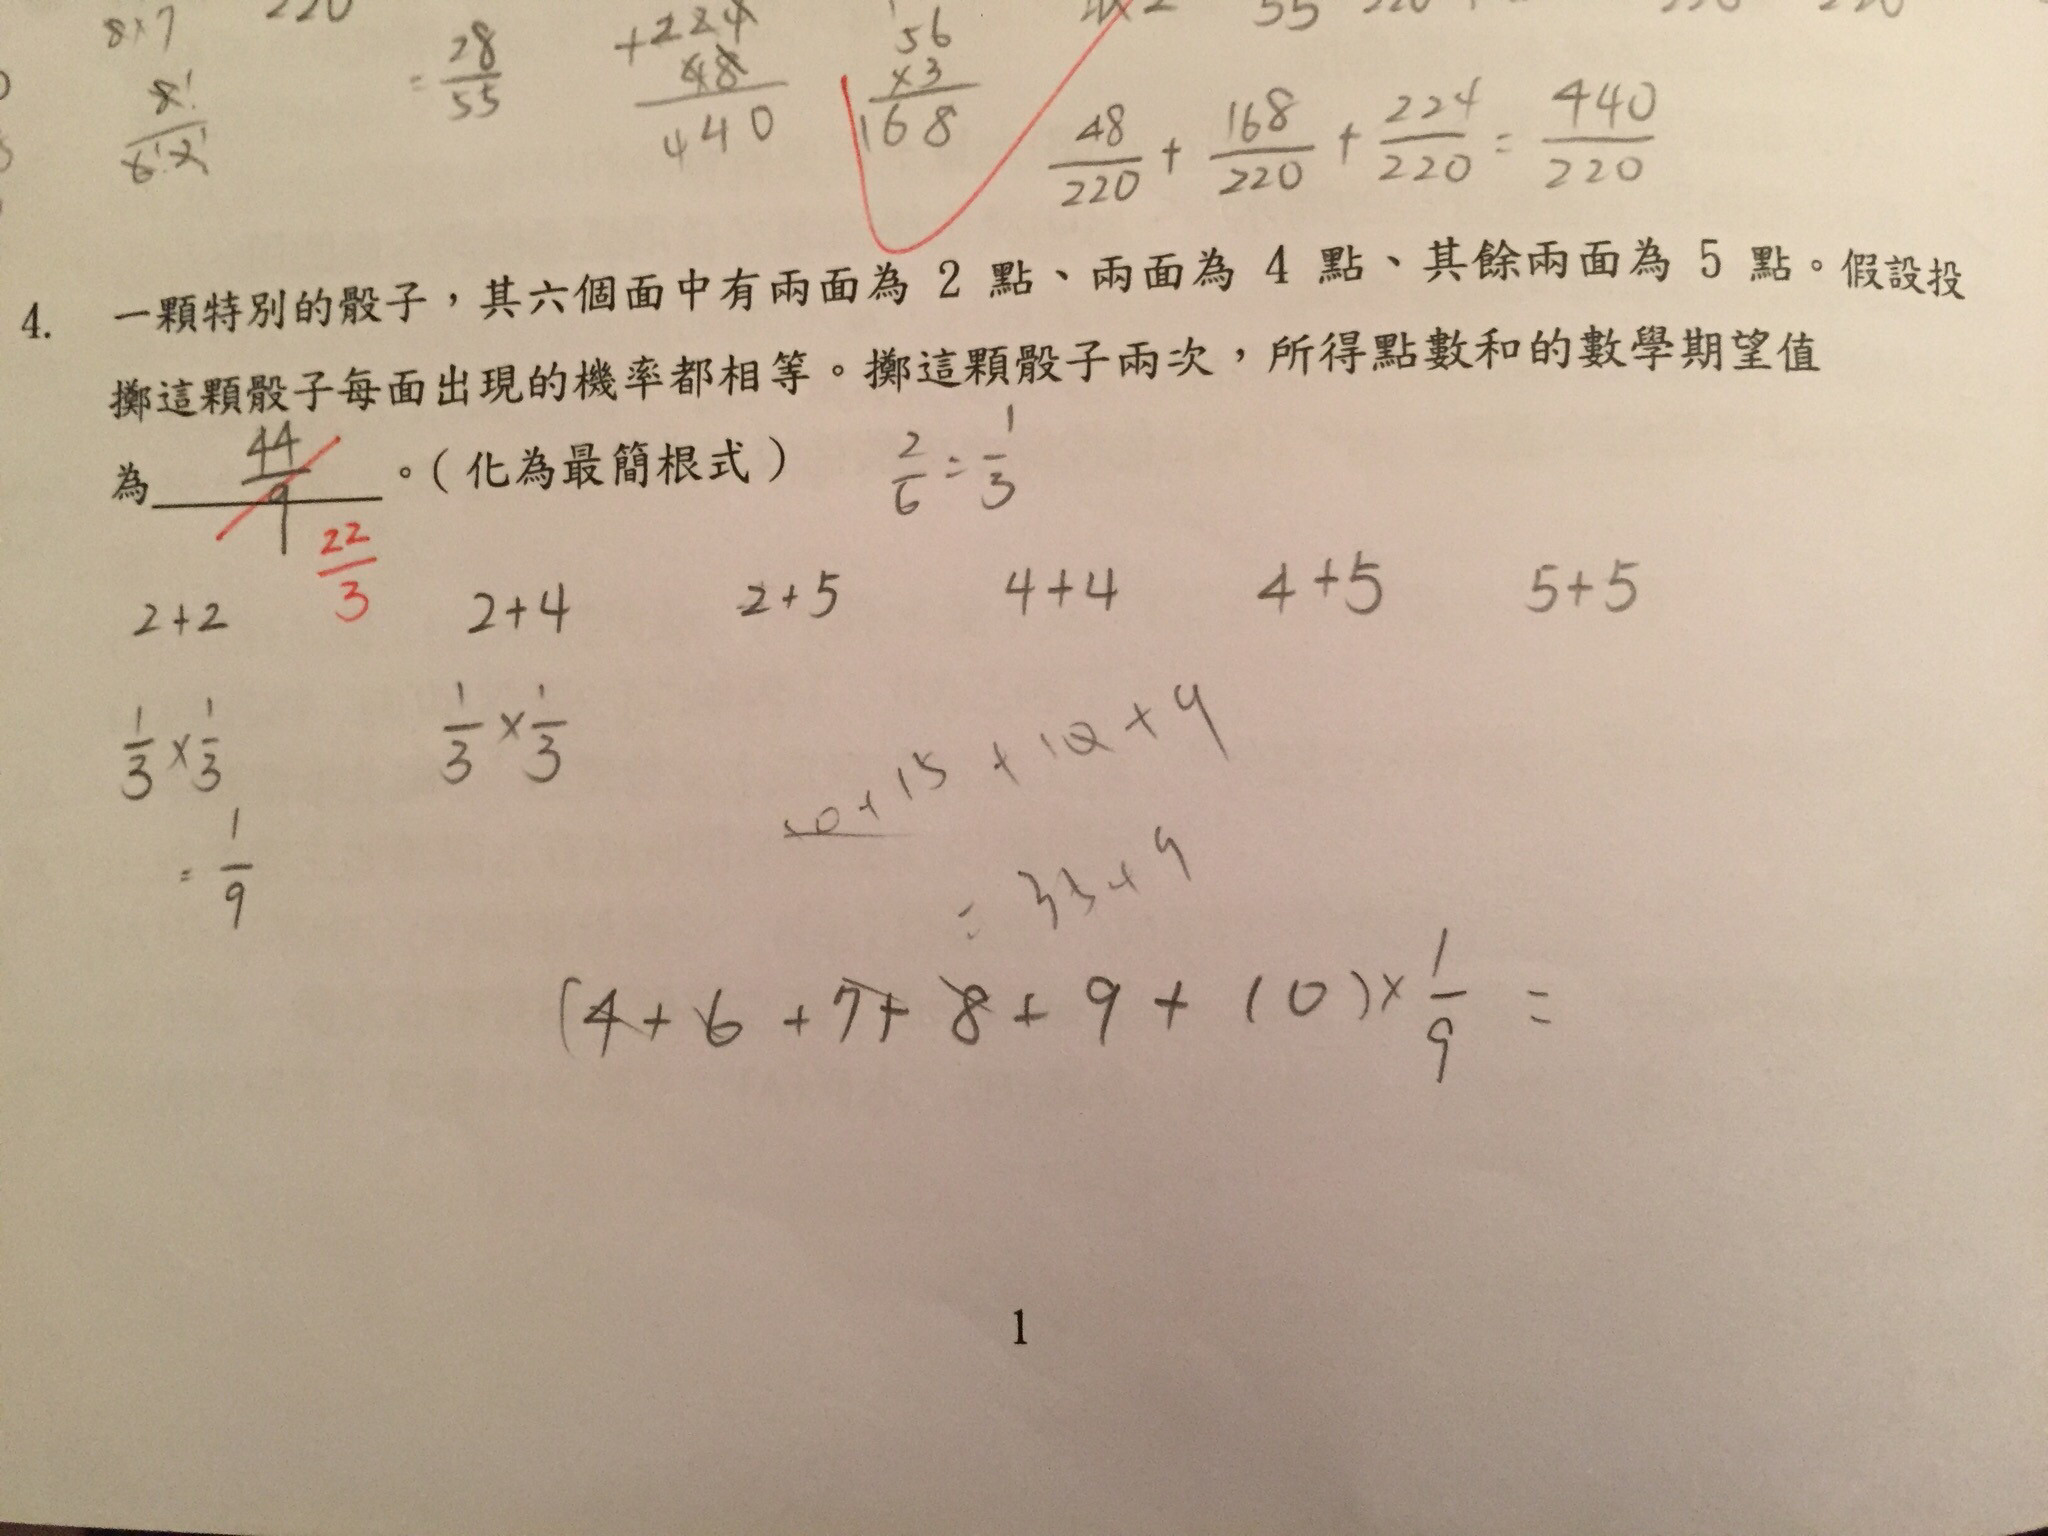 8×7
220
= 28/55
+224
48
440
56
×3
168
48/220 + 168/220 + 224/220 = 440/220
4. 一顆特別的骰子，其六個面中有兩面為 2 點、兩面為 4 點、其餘兩面為 5 點。假設投
擲這顆骰子每面出現的機率都相等。擲這顆骰子兩次，所得點數和的數學期望值
為 44/9 。（化為最簡根式）
2/6 = 1/3
22/3
2+2 2+4 2+5 4+4 4+5 5+5
1/3 × 1/3 1/3 × 1/3
= 1/9
10+15+10+9
(4+6+7+8+9+10)×1/9 =
1